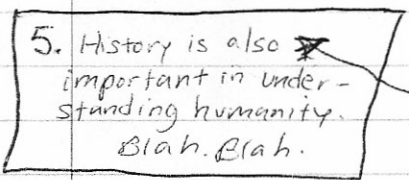 5. History is also
important in under-
standing humanity.
Blah. Blah.